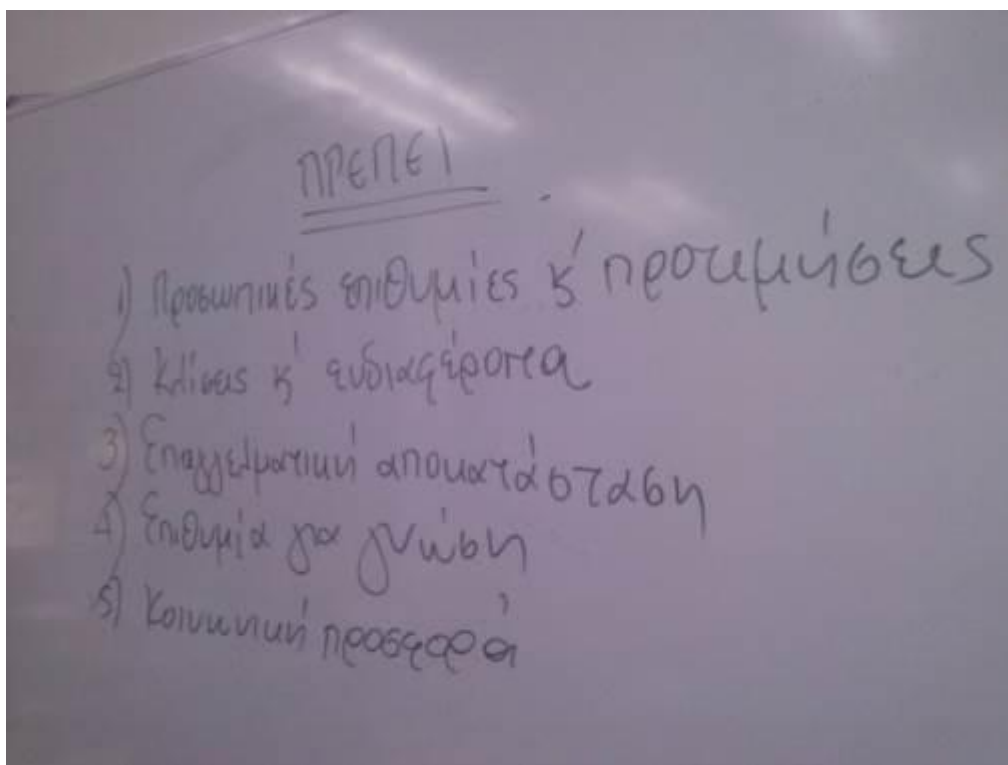 ΠΡΕΠΕΙ
1) Προσωπικές επιθυμίες κ' προτιμήσεις
2) Κλίσεις κ' ενδιαφέροντα
3) Επαγγελματική αποκατάσταση
4) Επιθυμία για γνώση
5) Κοινωνική προσφορά